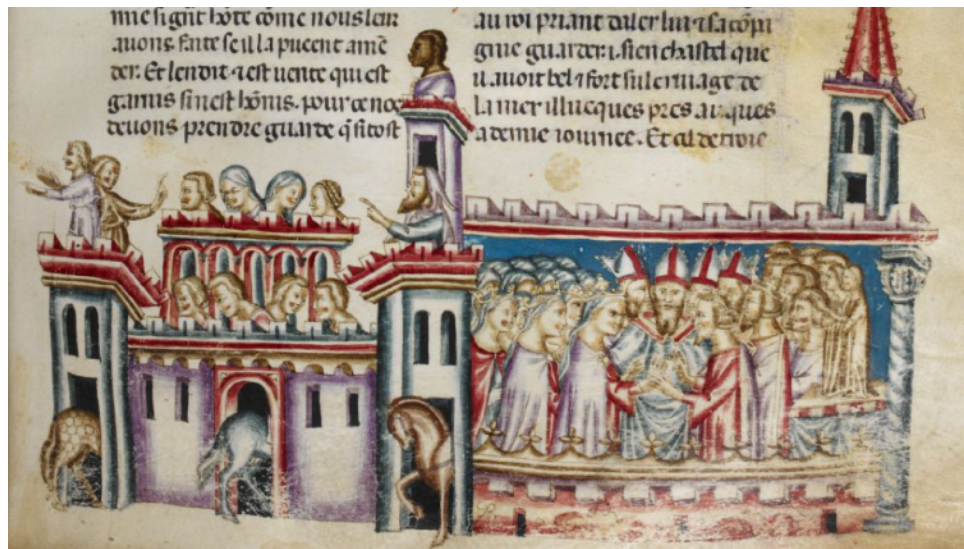 mie signt hōte cōme nous leur
auons faite se il la pueent amē
der. Et len dit ⁊ est uerite qui est
garnis si nest hōnis. pour ce noꝰ
deuons prendre guarde q̄ si tost
au roi priant daler lui ⁊ sa cōpi
gnie guarder. i. sien chastel que
il auoit bel ⁊ fort sus le riuage de
la mer illueques pres auques
a demie iournee. Et cil de troie